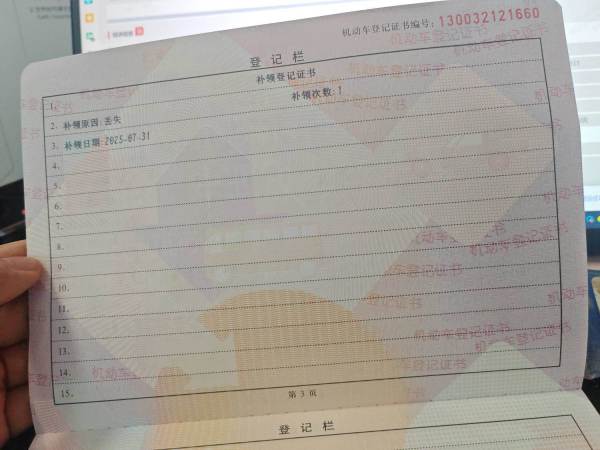 机动车登记证书编号: 130032121660
登记栏
1. 补领登记证书
2. 补领原因:丢失 补领次数:1
3. 补领日期:2025-07-31
4.
5.
6.
7.
8.
9.
10.
11.
12.
13.
14.
15.
第 3 页
登记栏